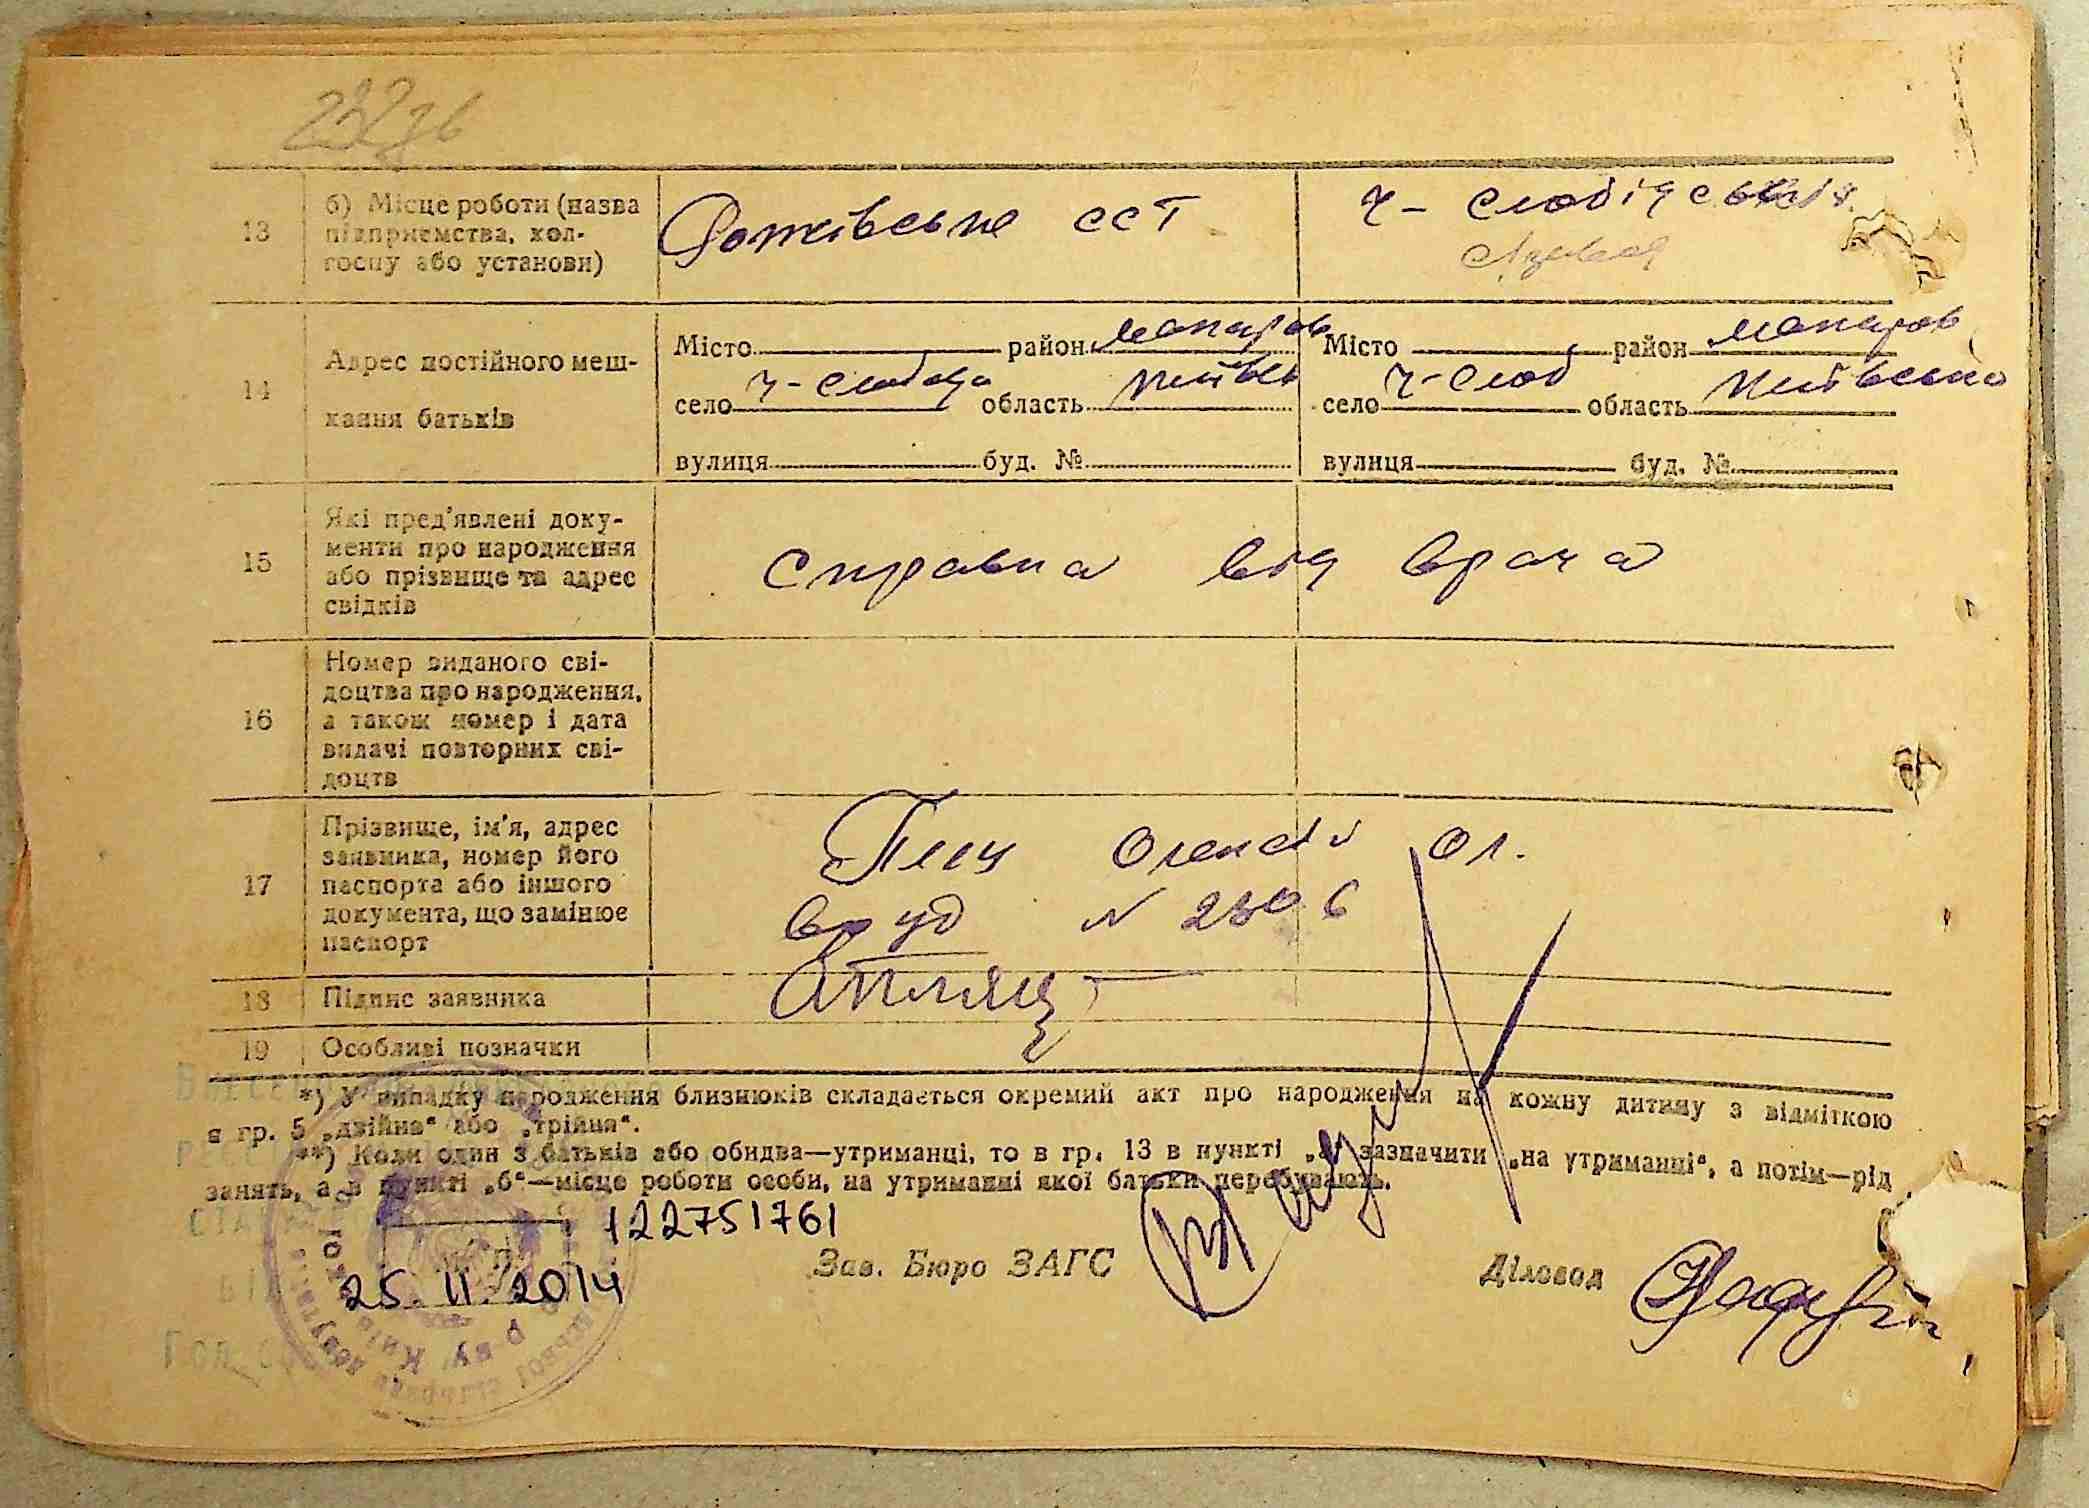 232зв
13 б) Місце роботи (назва підприємства, колгоспу або установи)
ССТ
Ч-Слобідська
14 Адрес постійного мешкання батьків
Місто район Макаров
село Ч-Слобода область Київсь
вулиця буд. №
Місто район Макаров
село Ч-Слоб область Київська
вулиця буд. №
15 Які пред'явлені документи про народження або прізвище та адрес свідків
Справка від врача
16 Номер виданого свідоцтва про народження, а також номер і дата видачі повторних свідоцтв
17 Прізвище, ім'я, адрес заявника, номер його паспорта або іншого документа, що замінює паспорт
Ол.
N 2506
18 Підпис заявника
19 Особливі позначки
*) У випадку народження близнюків складається окремий акт про народження на кожну дитину з відміткою
в гр. 5 „двійня“ або „трійня“.
**) Коли один з батьків або обидва—утриманці, то в гр. 13 в пункті „а“ зазначити „на утриманні“, а потім—рід
занять, а в пункті „б“—місце роботи особи, на утриманні якої батьки перебувають.
122751761
25.11.2014
Зав. Бюро ЗАГС
Діловод